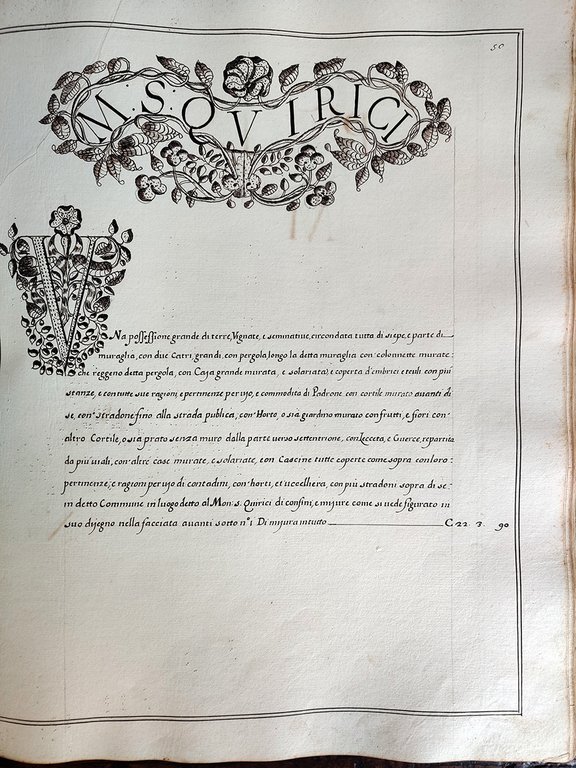 50
M · S · QVIRICI
VNa possessione grande di terre, Vignate, e seminative, circondata tutta di siepe, e parte di
muraglia, con due Catri grandi, con pergola, longo la detta muraglia con' colonnette murate:
che reggono detta pergola, con Casa grande murata, e solariata, e coperta d'embrici e teuli con più
stanze, e con tutte sue ragioni, e pertinenze per uso, e commodita di Padrone con cortile murato avanti di
se, con' stradone fino alla strada publica, con' Horto, o sia giardino murato con frutti, e fiori con'
altro Cortile, o sia prato senza muro dalla parte verso settentrione, con Lecceta, e Guerce, repartita
da più viali, con' altre case murate, e solariate, con Cascine tutte coperte come sopra con loro:
pertinenze, e ragioni per uso di contadini, con' horti, et uccelliera, con più stradoni sopra di se:
in detto Commune in luogo detto al Mon: s. Quirici di confini, e misure come si vede figurato in
suo disegno nella facciata avanti sotto n° 1 Di misura in tutto C 22. 3. 90